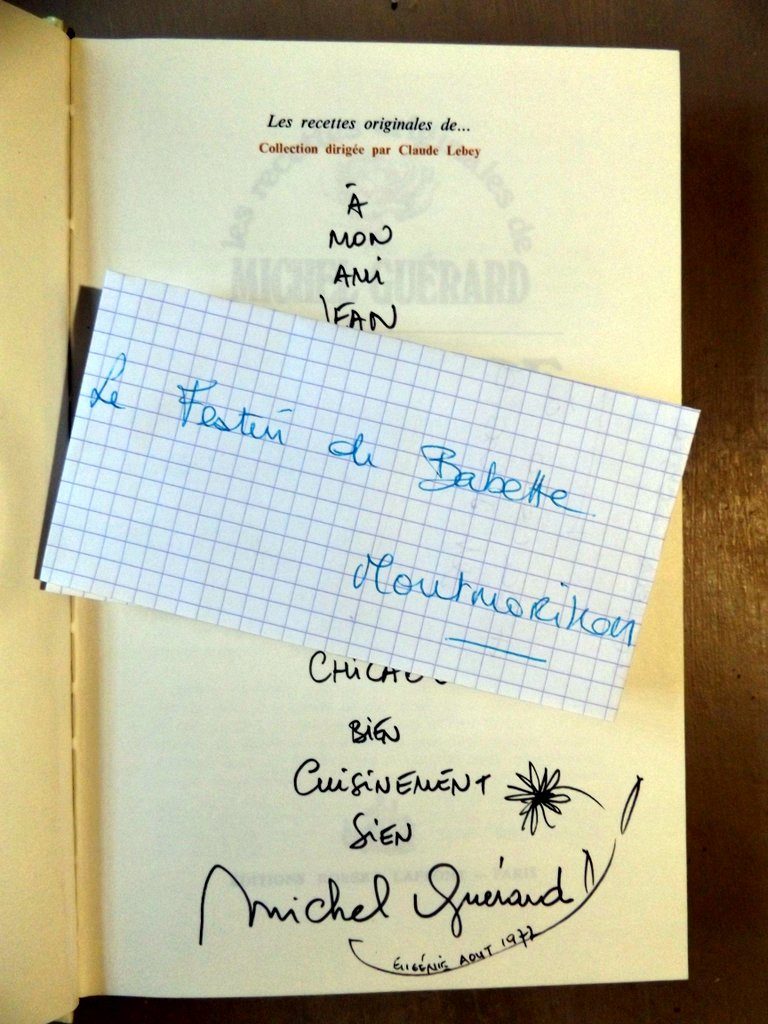 Les recettes originales de...
Collection dirigée par Claude Lebey
les recettes originales de
MICHEL GUÉRARD
À
MON
AMI
JEAN
Le Festin de Babette
Montmorillon
BIEN
CUISINEMENT
SIEN
EDITIONS ROBERT LAFFONT - PARIS
Michel Guérard
EUGÉNIE AOUT 1977